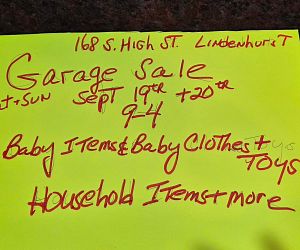 168 S. High St. Lindenhurst
Garage Sale
Sat + Sun Sept 19th + 20th
9-4
Baby Items & Baby Clothes + Toys
Toys
Household Items + more